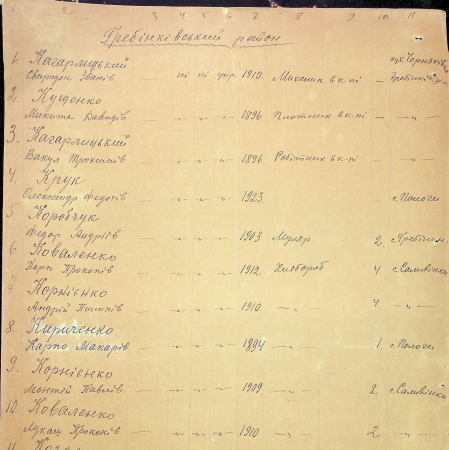 2 3 4 5 6 7 8 9 10 11
Гребінківський район
1. Кагарлицький
Свиридон Іванів — ні ні укр. 1910 Механик в к-пі —
2. Кущенко
Микита Давидів — -„- -„- -„- 1896 Плотник в к-пі — -„-
3. Кагарлицький
Вакул Трохимів — -„- -„- -„- 1896 Робітник в к-пі — -„-
4. Крук
Олександр Федотів — -„- -„- -„- 1923 — с. Пологи
5 Коробчук
Федор Андріїв — -„- -„- -„- 1903 Муляр 2 с. Гребінки
6 Коваленко
Карп Прокопів — -„- -„- -„- 1912 Хлібороб 4 с. Саливінки
7 Корнієнко
Андрій Пилипів — -„- -„- -„- 1910. -„- 4 -„-
8. Кириченко
Карпо Макарів — -„- -„- -„- 1894 -„- 1. с. Пологи
9. Корнієнко
Леонтій Павлів — -„- -„- -„- 1909 -„- 2 с. Саливінки
10. Коваленко
Лукаш Прокопів — -„- -„- -„- 1910 -„- 2 -„-
11